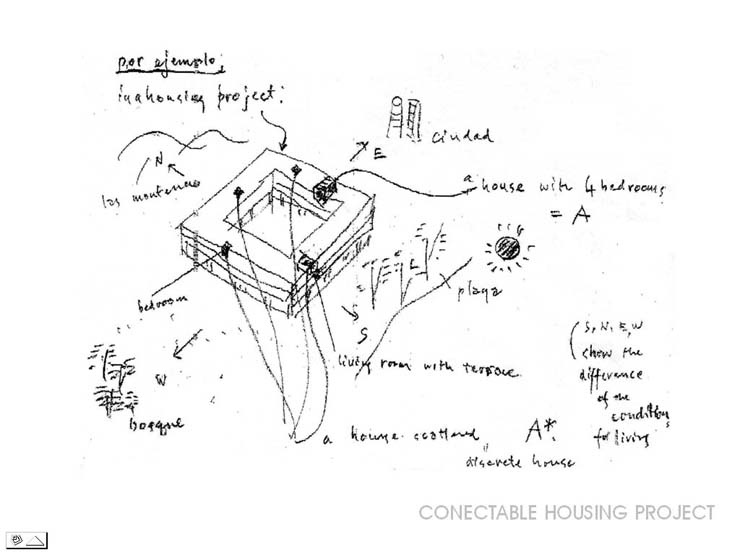 por ejemplo;
in a housing project:
ciudad
N
E
los montenas
a house with 4 bedrooms
= A
playa
bedroom
S
W
living room with terrace
bosque
a house scattered
A*.
discrete house
S, N, E, W
show the
difference
of the
conditions
for living
CONECTABLE HOUSING PROJECT